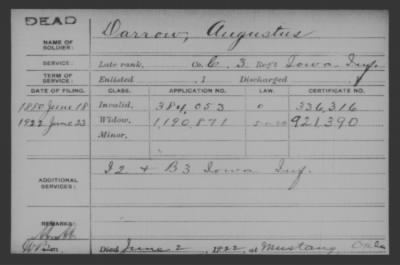 DEAD
NAME OF SOLDIER: Darrow, Augustus
SERVICE: Late rank, Co. C, 3 Reg't Iowa Inf.
TERM OF SERVICE: Enlisted , 1 Discharged , 1
DATE OF FILING. CLASS. APPLICATION NO. LAW. CERTIFICATE NO.
1880 June 18 Invalid, 384,053 0 336,316
1922 June 23 Widow, 1,190,871 921,390
Minor,
ADDITIONAL SERVICES: I 2 & B 3 Iowa Inf.
REMARKS:
Died June 2, 1922, at Mustang, Okla